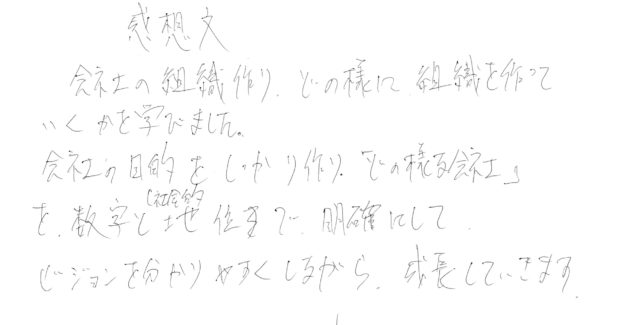 感想文
会社の組織作り、どの様に組織を作って
いくかを学びました。
会社の目的をしっかり作り、「どの様な会社」
を、数字と(社会的地位まで、明確にして
ビジョンを分かりやすくしながら、成長していきます。